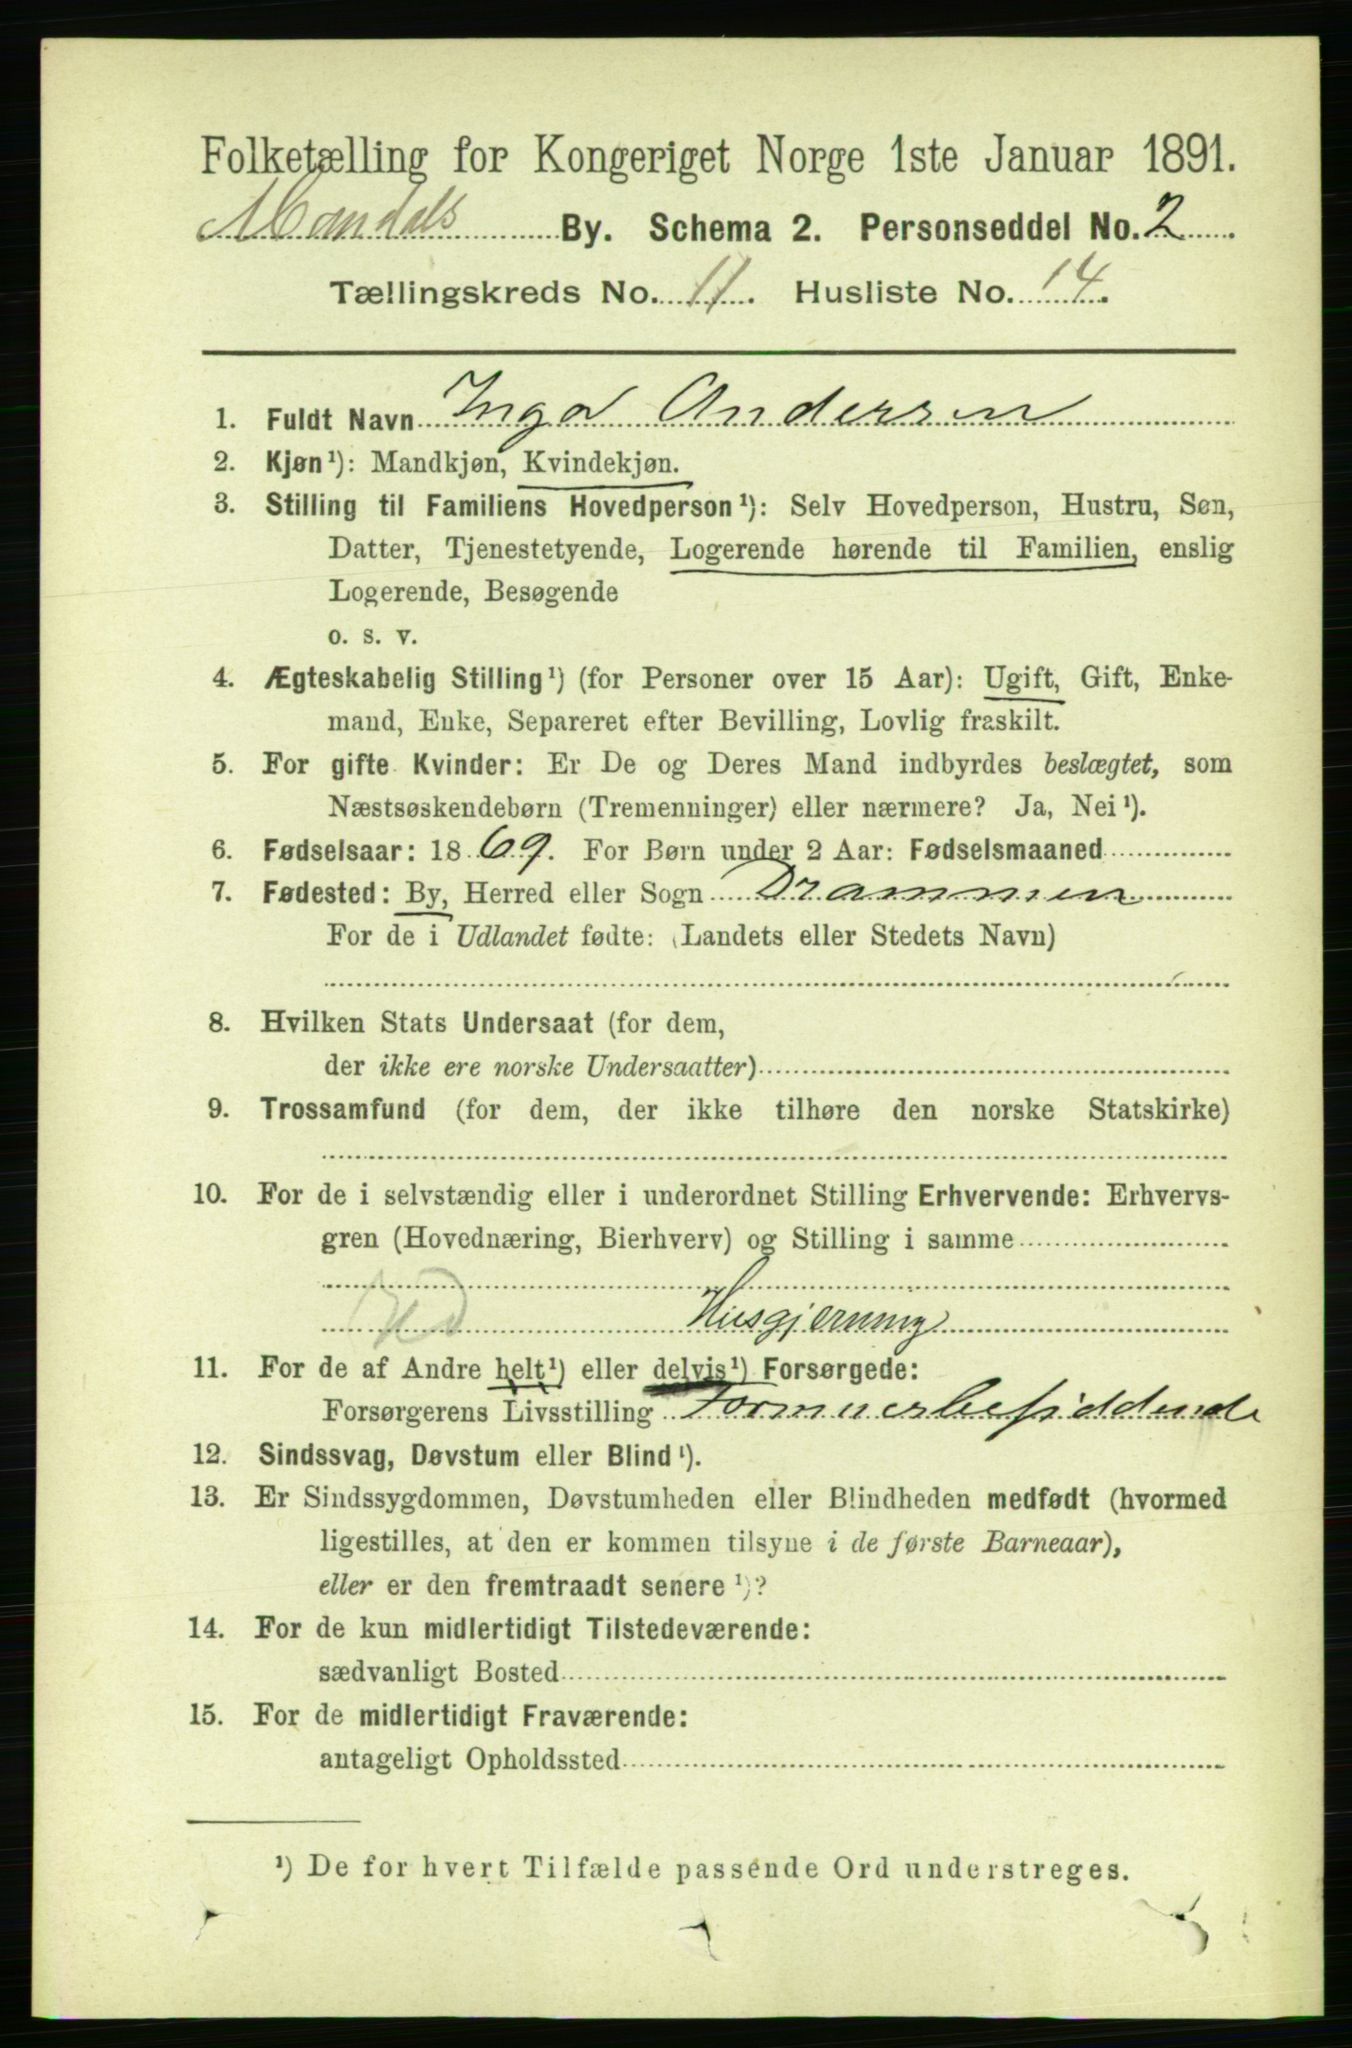 Folketælling for Kongeriget Norge 1ste Januar 1891.
Mandals By. Schema 2. Personseddel No. 2
Tællingskreds No. 11. Husliste No. 14.
1. Fuldt Navn Inga Andersen
2. Kjøn¹): Mandkjøn, Kvindekjøn.
3. Stilling til Familiens Hovedperson¹): Selv Hovedperson, Hustru, Søn,
Datter, Tjenestetyende, Logerende hørende til Familien, enslig
Logerende, Besøgende
o. s. v.
4. Ægteskabelig Stilling¹) (for Personer over 15 Aar): Ugift, Gift, Enke-
mand, Enke, Separeret efter Bevilling, Lovlig fraskilt.
5. For gifte Kvinder: Er De og Deres Mand indbyrdes beslægtet, som
Næstsøskendebørn (Tremenninger) eller nærmere? Ja, Nei¹).
6. Fødselsaar: 1869. For Børn under 2 Aar: Fødselsmaaned
7. Fødested: By, Herred eller Sogn Drammen
For de i Udlandet fødte: (Landets eller Stedets Navn)
8. Hvilken Stats Undersaat (for dem,
der ikke ere norske Undersaatter)
9. Trossamfund (for dem, der ikke tilhøre den norske Statskirke)
10. For de i selvstændig eller i underordnet Stilling Erhvervende: Erhvervs-
gren (Hovednæring, Bierhverv) og Stilling i samme
Husgjerning
11. For de af Andre helt¹) eller delvis¹) Forsørgede:
Forsørgerens Livsstilling Formuesbesiddende
12. Sindssvag, Døvstum eller Blind¹).
13. Er Sindssygdommen, Døvstumheden eller Blindheden medfødt (hvormed
ligestilles, at den er kommen tilsyne i de første Barneaar),
eller er den fremtraadt senere¹)?
14. For de kun midlertidigt Tilstedeværende:
sædvanligt Bosted
15. For de midlertidigt Fraværende:
antageligt Opholdssted
¹) De for hvert Tilfælde passende Ord understreges.